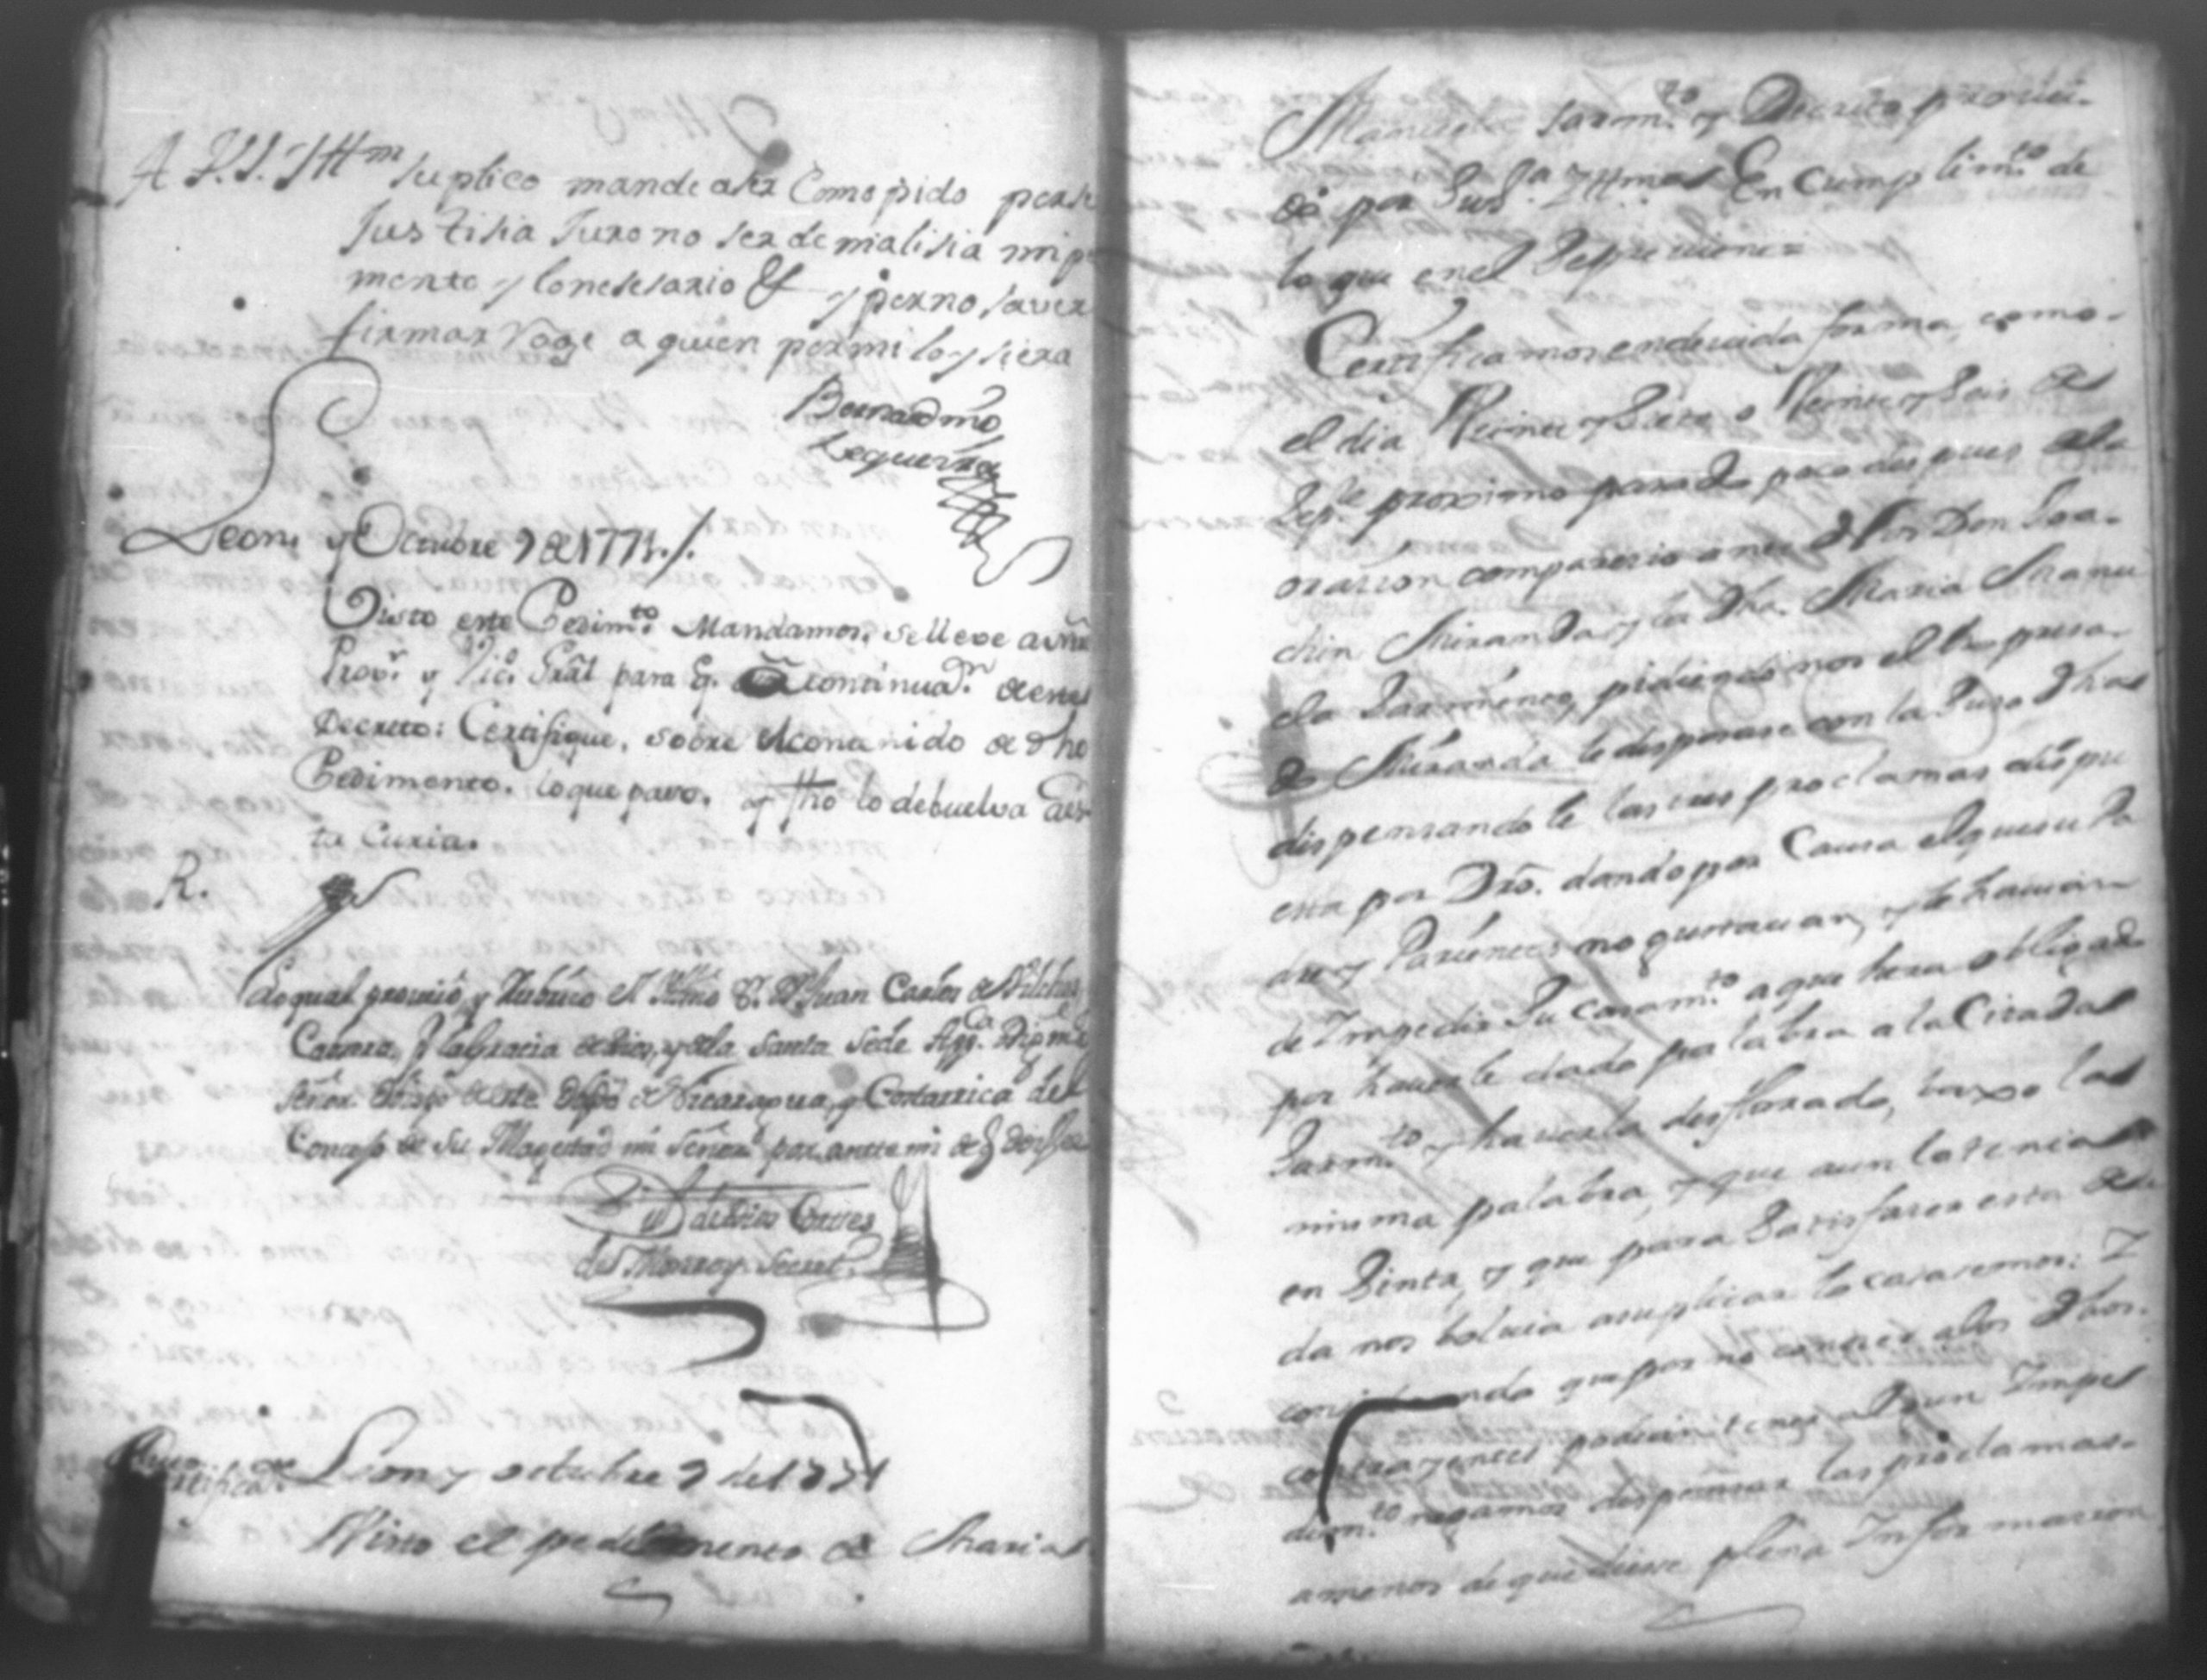 A V.S. Yllm suplico mande aser Como pido per se
Justisia Juro no ser de malisia mi p
mente y lo nesesario &  y per no saver
firmar Roge a quien por mi lo ysiera
Bernardino
Leguerica
Leon, y Octubre 9 de 1771./.
Visto este Pedim.to Mandamos, se lleve a nro
Prov.r y Vic.o Gral para q. a continua.on de este
Decreto: Certifique, sobre el contenido de dho
Pedimento. lo que paso. y fho lo debuelva a es-
ta Curia.
R.
Lo qual proveió, y rubrico el Yllmo S. D. Juan Carlos de Vilches
Cabrera, P. la gracia de Dios, y de la Santa Sede App.ca Dig.mo
Señor Obispo de este Obpdo de Nicaragua, y Costarrica del
Consejo de Su Magestad mi Señor por ante mi de q. doy fee
de Dios Cortes
del Monroy Secret.
Certificaz.on Leon y octubre 9 de 1771
Visto el pedimento de Maria
Manuela Sarm.to y Decreto provei-
do por Su S.a Yllma En Cumplim.to de
lo que en el Se previene=
Certificamos en devida forma, como-
el dia Veinte y Siete o Veinte y Seis de
Sep.re proximo pasado poco despues de la
orazion comparesio ante Nos Don Joa-
chin Miranda y la dha. Maria Manu
ela Sarmiento, pidiendonos el expresa-
do Miranda le desposase con la Suso dha
dispensandole las tres proclamas dispu
esta por Dro. dando por Causa el que su Pa
dre y Parientes no gustavan, y le havian
de Ympedir Su casam.to a que hera obligado
por haverle dado palabra a la Citada
Sarm.to y haverla desflorado, baxo la
misma palabra, y que aun la tenia
en Sinta, y que para Satisfaser esta deu
da nos bolvia asuplicar lo casasemos: Y
considerando que por no conocer a los dhos.
contrayentes podian tener algun Ympe
dim.to negamos dispensar las proclamas-
amenos de que diese plena Ynformazion